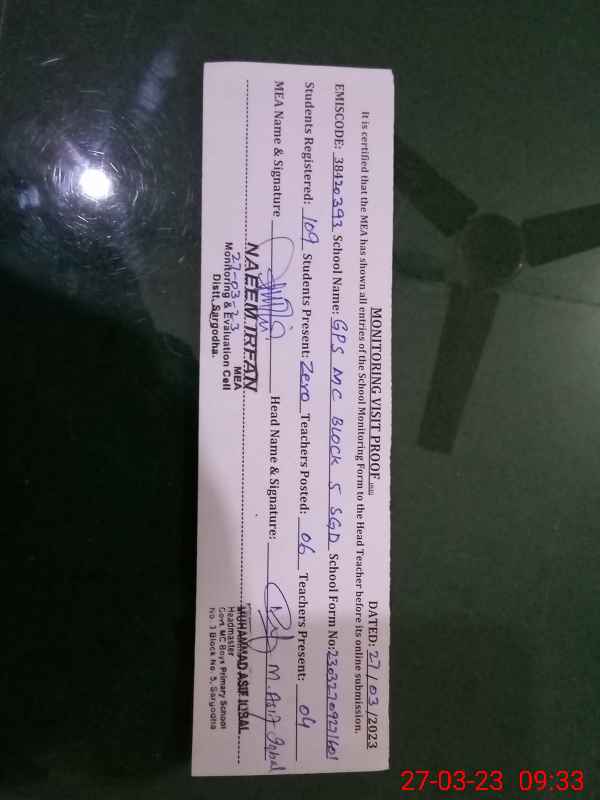 MONITORING VISIT PROOF
DATED: 27/03/2023
It is certified that the MEA has shown all entries of the School Monitoring Form to the Head Teacher before its online submission.
EMISCODE: 38420393 School Name: GPS MC BLOCK 5 SGD School Form No: 2303270927601
Students Registered: 109 Students Present: Zero Teachers Posted: 06 Teachers Present: 04
MEA Name & Signature Head Name & Signature: M. Asif Iqbal
NAEEM IRFAN
MEA
27-03-23
Monitoring & Evaluation Cell
Distt. Sargodha.
MUHAMMAD ASIF IQBAL
Headmaster
Govt. MC Boys Primary School
No. 3 Block No. 5, Sargodha
27-03-23 09:33